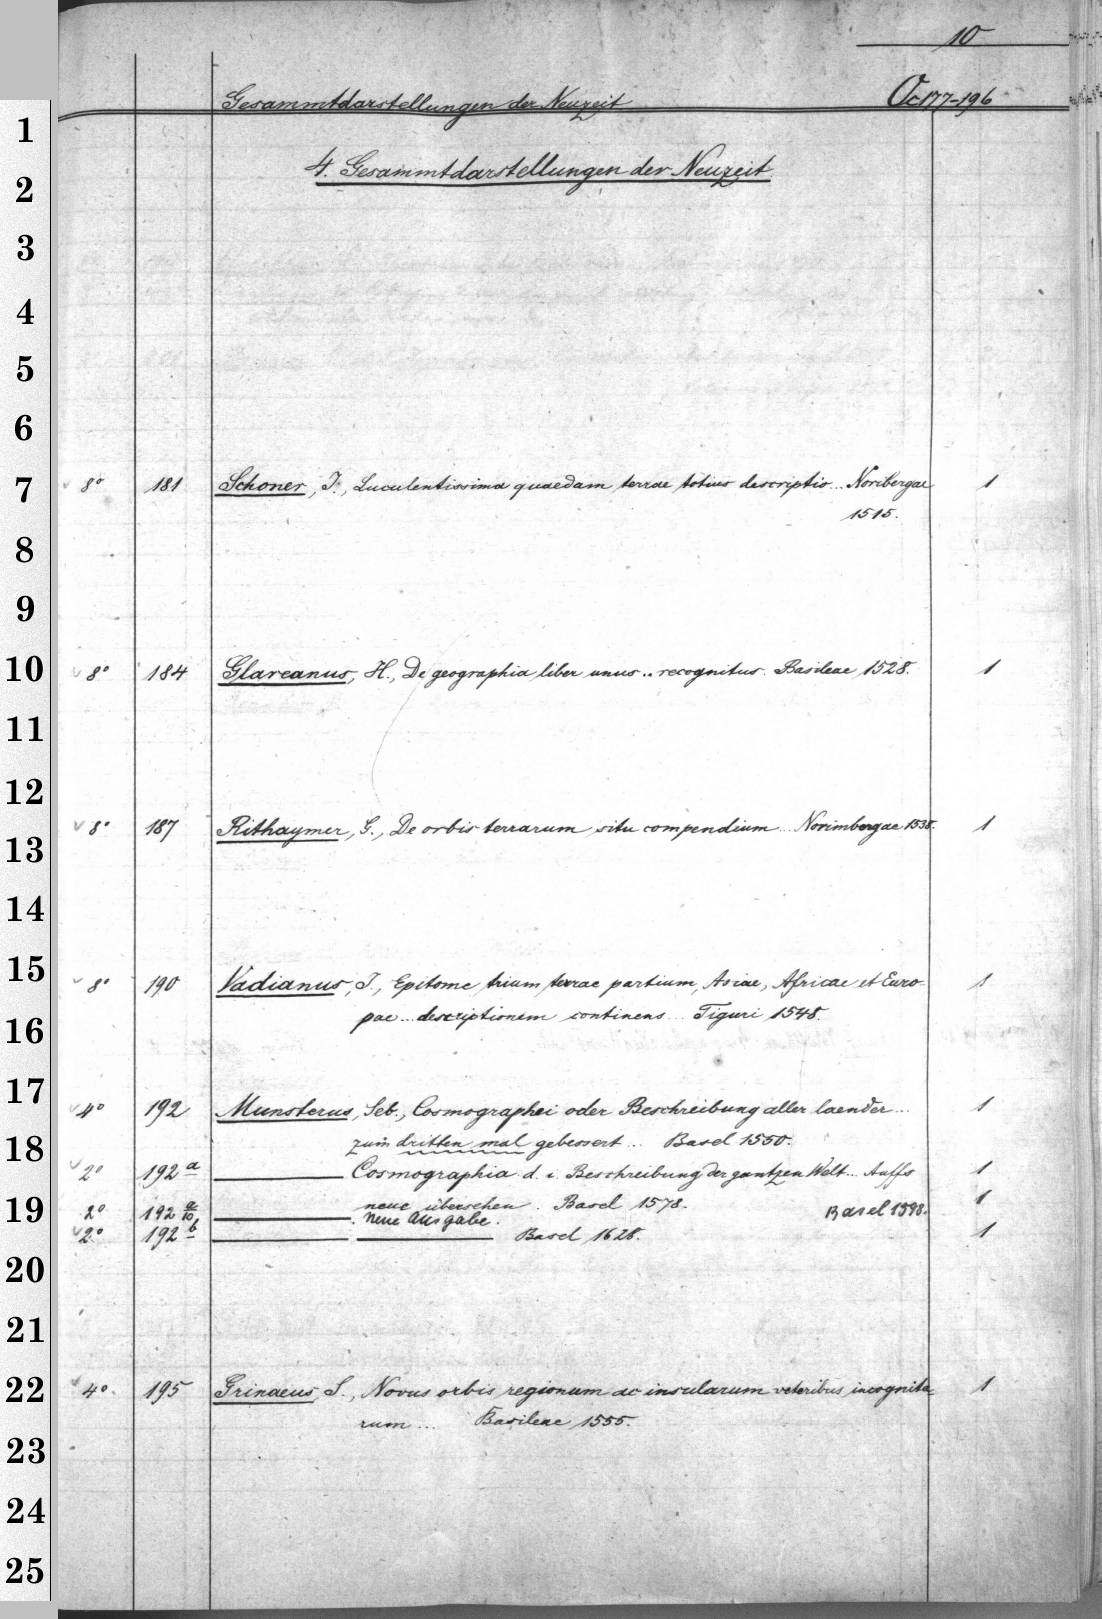 10
Gesammtdarstellungen der Neuzeit Oc 177-196
4. Gesammtdarstellungen der Neuzeit
1
2
3
4
5
6
7
8
9
10
11
12
13
14
15
16
17
18
19
20
21
22
23
24
25
8° 181 Schoner, J., Luculentissima quaedam terrae totius descriptio... Noribergae 1
1515.
8° 184 Glareanus, H., De geographia liber unus .. recognitus. Basileae 1528. 1
8° 187 Rithaymer, G., De orbis terrarum situ compendium... Norimbergae 1538. 1
8° 190 Vadianus, J., Epitome trium terrae partium, Asiae, Africae et Euro- 1
pae... descriptionem continens... Tiguri 1548.
4° 192 Munsterus, Seb., Cosmographei oder Beschreibung aller laender... 1
zum dritten mal gebessert... Basel 1550.
2° 192 a Cosmographia d. i. Beschreibung der gantzen Welt... Auffs 1
neue übersehen. Basel 1578.
2° 192 a/10 Neue Ausgabe. Basel 1598. 1
2° 192 b Basel 1628. 1
4° 195 Grinaeus, S., Novus orbis regionum ac insularum veteribus incognita- 1
rum... Basileae 1555.